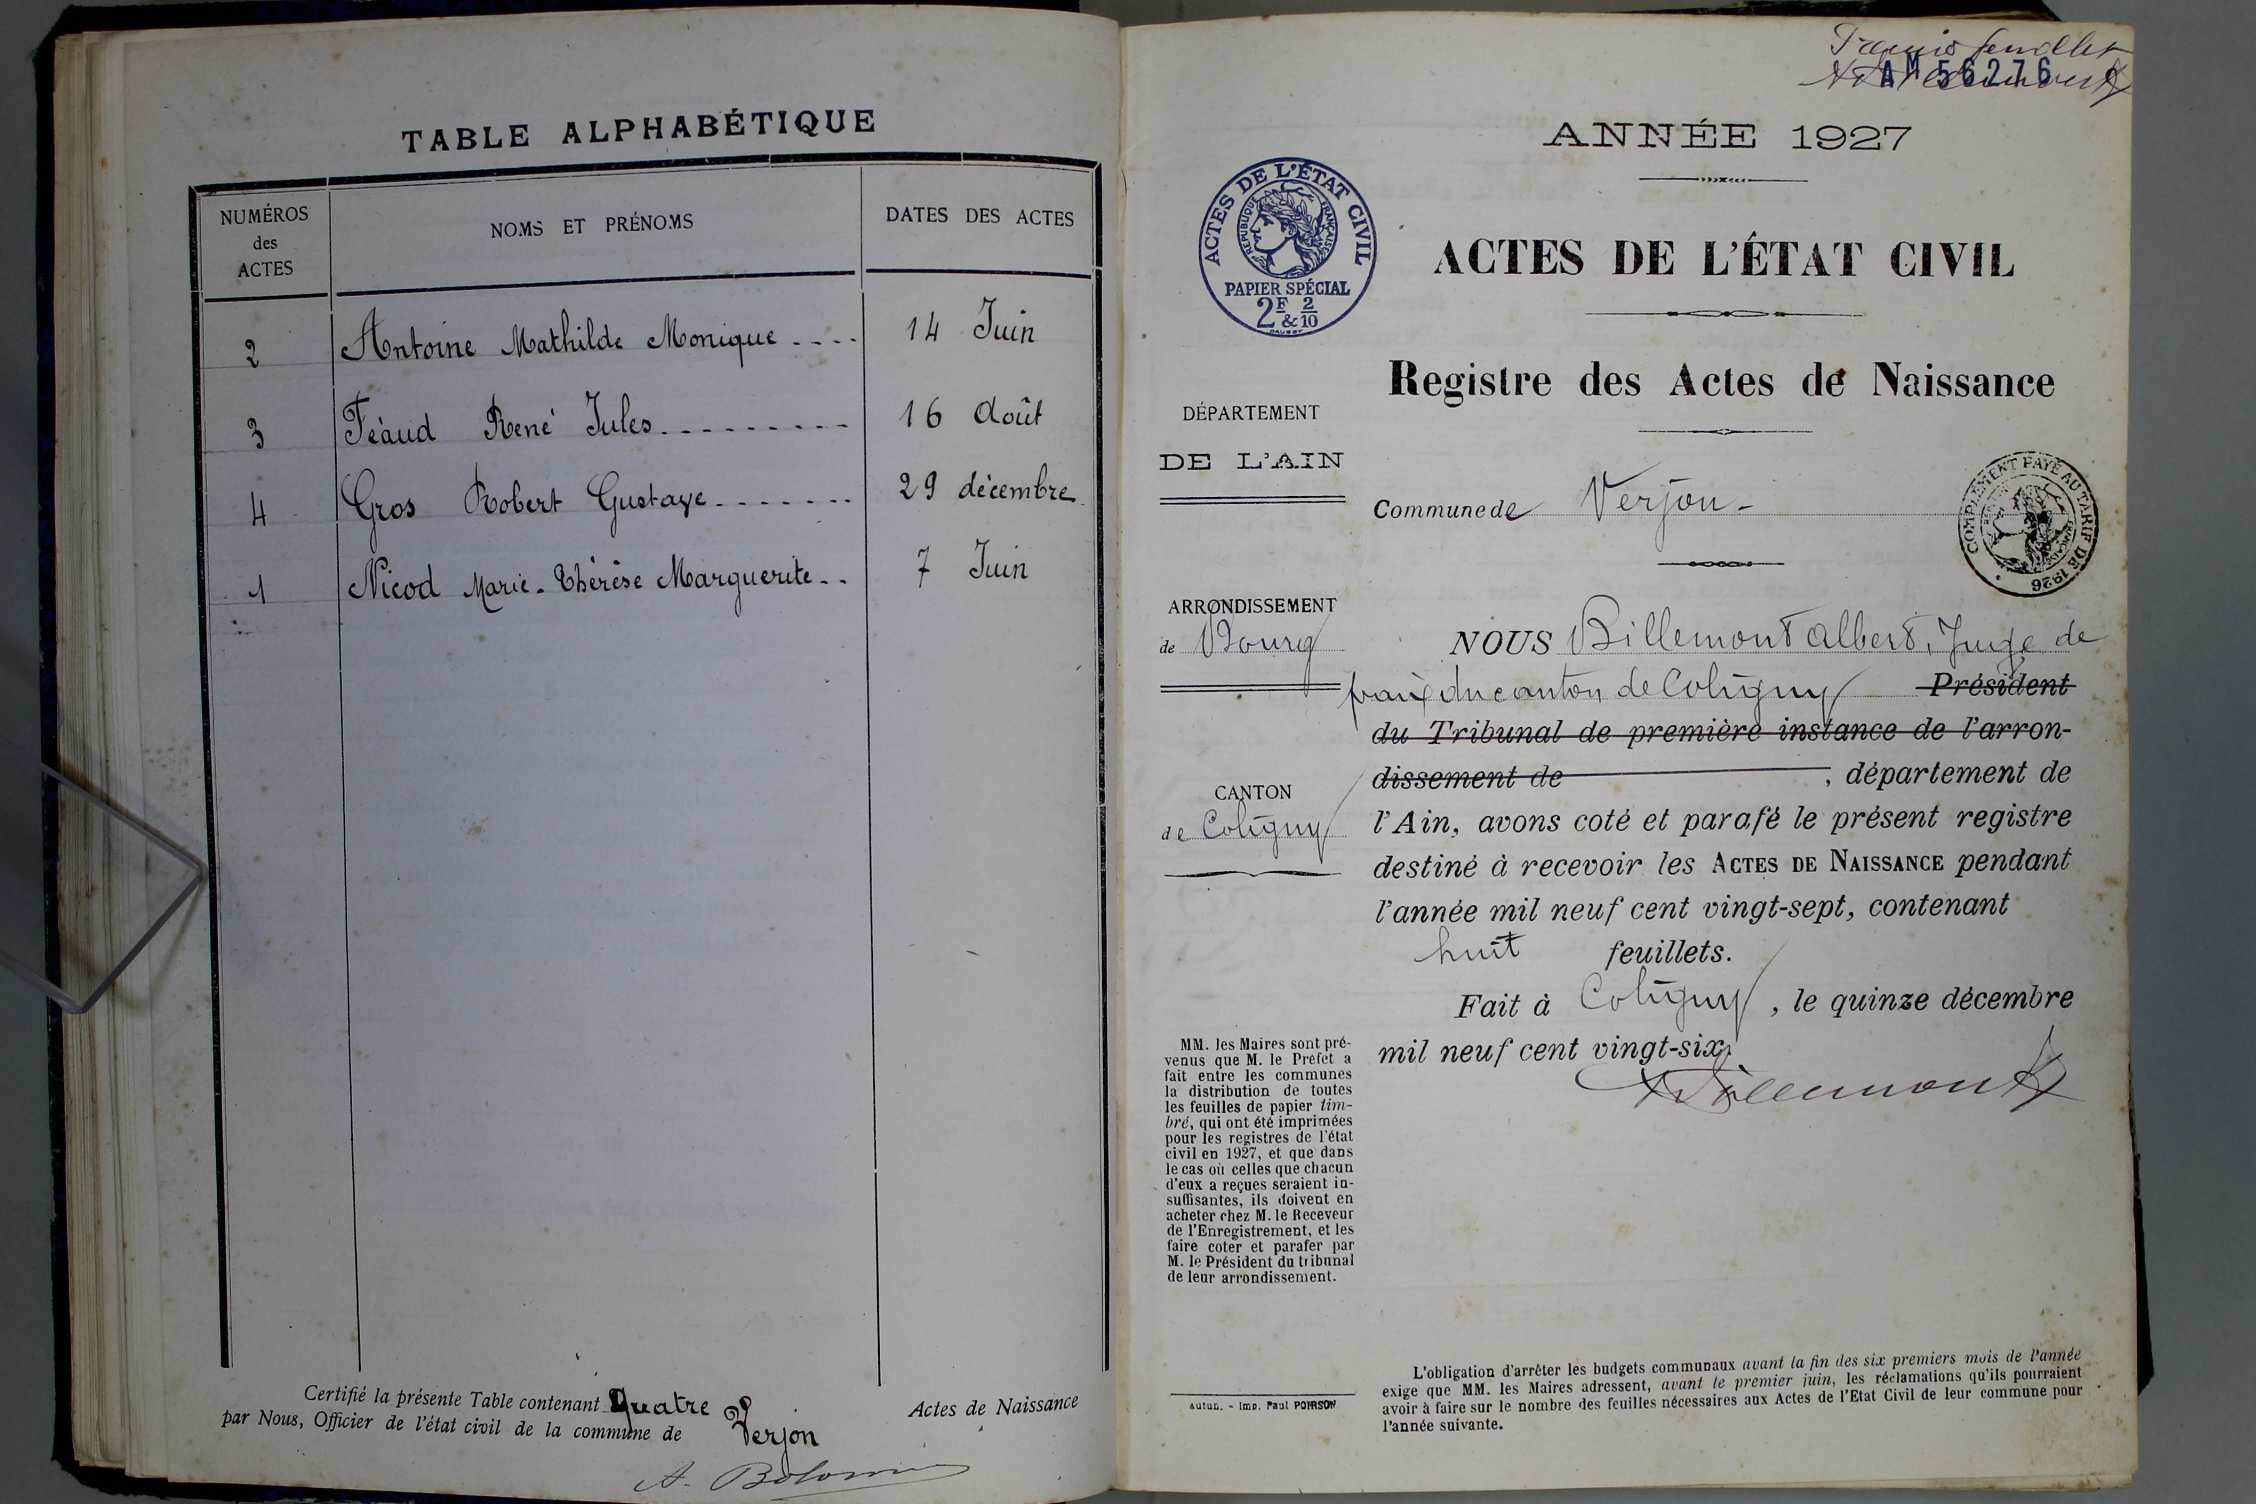 TABLE ALPHABÉTIQUE
NUMÉROS
des
ACTES
NOMS ET PRÉNOMS
DATES DES ACTES
2 Antoine Mathilde Monique 14 Juin
3 Féaud René Jules 16 Août
4 Gros Robert Gustave 29 décembre
1 Nicod Marie-Thérèse Marguerite 7 Juin
Certifié la présente Table contenant Quatre Actes de Naissance
par Nous, Officier de l'état civil de la commune de Verjon
A.
feuillet
AM 56276
ANNÉE 1927
ACTES DE L'ÉTAT CIVIL
RÉPUBLIQUE FRANÇAISE
PAPIER SPÉCIAL
2F & 2/10
ACTES DE L'ÉTAT CIVIL
Registre des Actes de Naissance
DÉPARTEMENT
DE L'AIN
Commune de Verjon
COMPLÉMENT PAYÉ AU TARIF DE 1926
ARRONDISSEMENT
de Bourg
CANTON
de Coligny
NOUS Billemont Albert, Juge de
paix du canton de Coligny Président
du Tribunal de première instance de l'arron-
dissement de , département de
l'Ain, avons coté et parafé le présent registre
destiné à recevoir les ACTES DE NAISSANCE pendant
l'année mil neuf cent vingt-sept, contenant
huit feuillets.
Fait à Coligny, le quinze décembre
mil neuf cent vingt-six.
Billemont
MM. les Maires sont pré-
venus que M. le Préfet a
fait entre les communes
la distribution de toutes
les feuilles de papier tim-
bré, qui ont été imprimées
pour les registres de l'état
civil en 1927, et que dans
le cas où celles que chacun
d'eux a reçues seraient in-
suffisantes, ils doivent en
acheter chez M. le Receveur
de l'Enregistrement, et les
faire coter et parafer par
M. le Président du tribunal
de leur arrondissement.
Autun. - Imp. Paul POIRSON
L'obligation d'arrêter les budgets communaux avant la fin des six premiers mois de l'année
exige que MM. les Maires adressent, avant le premier juin, les réclamations qu'ils pourraient
avoir à faire sur le nombre des feuilles nécessaires aux Actes de l'Etat Civil de leur commune pour
l'année suivante.